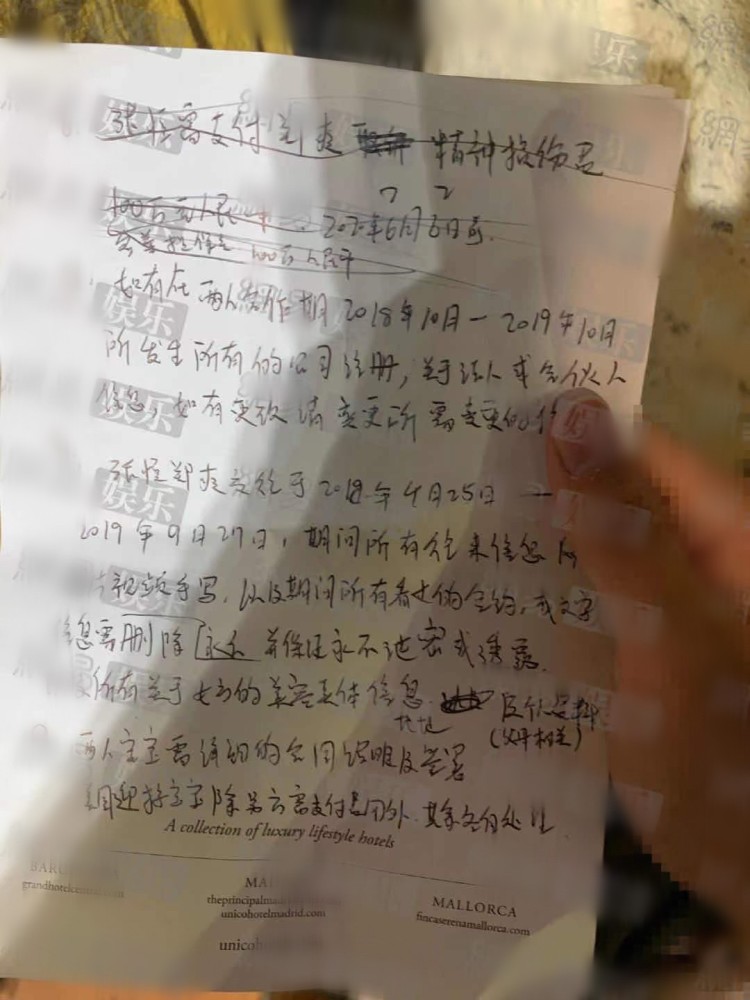 张恒需支付郑爽 精神损伤费
100万元人民币 2020年6月6日前
7 2
100万人民币
如有在两人合作期2018年10月—2019年10月
所发生所有的公司注册,关于法人或合伙人
信息,如有更改请变更所需变更的
张恒郑爽交往于2018年4月25日—
2019年9月27日,期间所有往来信息及
视频手写,以及期间所有者女的合约,或文字
信息需删除 永久 并保证永不泄密或透露.
所有关于女方的美容具体信息.
地址
(父母相关)
两人宝宝需详细的合同说明及签署
宝宝除另方需支付费用外.其余各自处理
A collection of luxury lifestyle hotels
BAR
grandhotelcen
MA
theprincipalma
unicohotelmadrid.com
MALLORCA
fincaserenamallorca.com
unico
娱乐
網